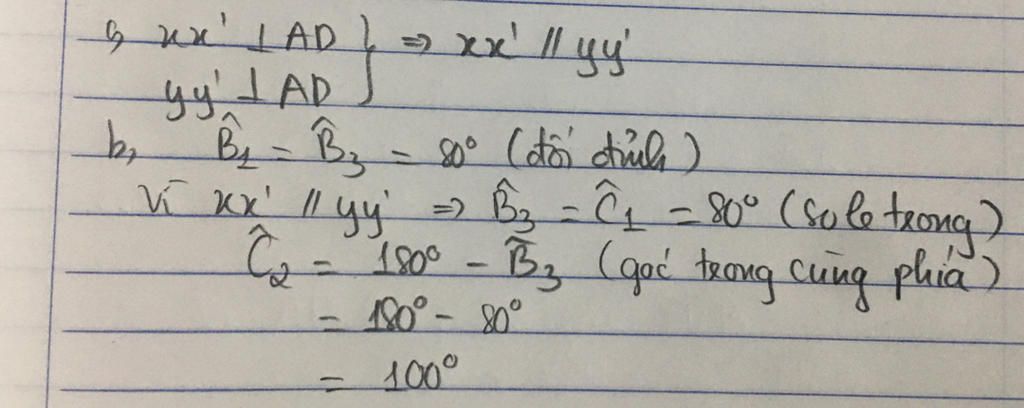 a, xx' ⊥ AD } ⇒ xx' // yy'
yy' ⊥ AD
b, B̂1 = B̂3 = 80° (đối đỉnh)
Vì xx' // yy' ⇒ B̂3 = Ĉ1 = 80° (so le trong)
Ĉ2 = 180° - B̂3 (góc trong cùng phía)
= 180° - 80°
= 100°